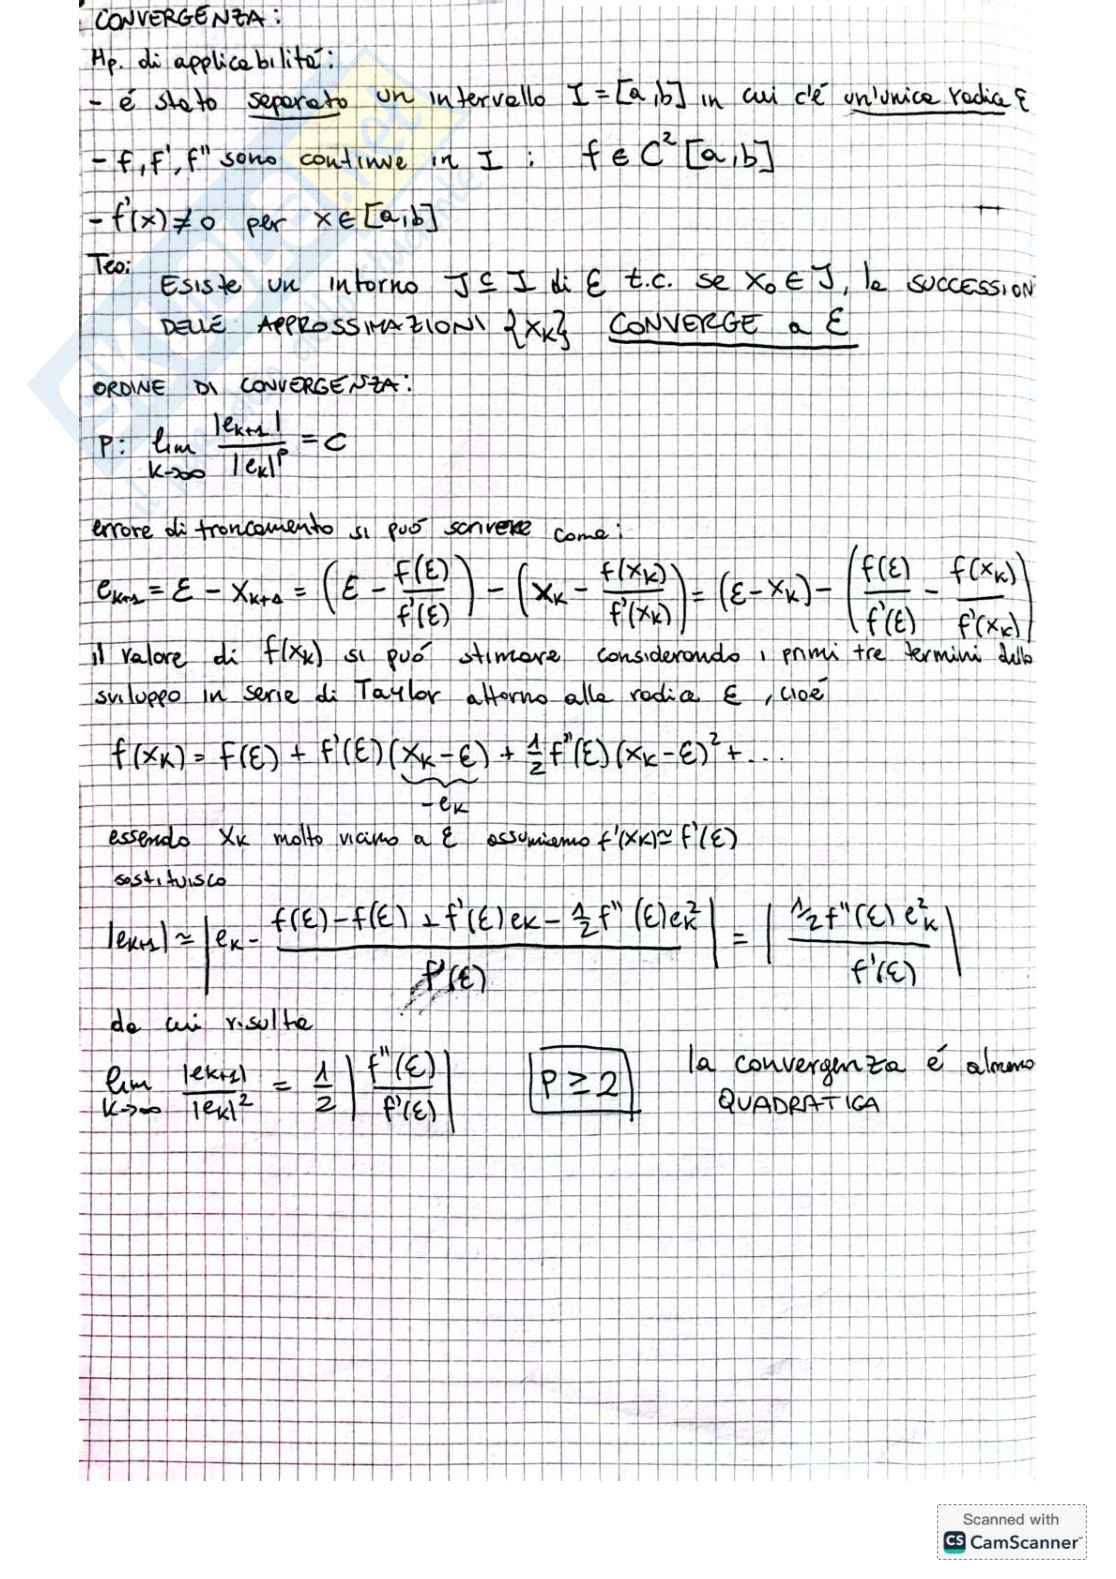 CONVERGENZA:
Hp. di applicabilità:
- é stato separato un intervallo I = [a,b] in cui c'é un'unica radice ξ
- f, f', f'' sono continue in I : f ∈ C² [a,b]
- f'(x) ≠ 0 per x ∈ [a,b]
Teo:
Esiste un intorno J ⊆ I di ξ t.c. se x₀ ∈ J, la SUCCESSION
DELLE APPROSSIMAZIONI {x_k} CONVERGE a ξ
ORDINE DI CONVERGENZA:
P: lim_{k→∞} |e_{k+1}| / |e_k|^p = C
errore di troncamento si può scrivere come:
e_{k+1} = ξ - x_{k+1} = (ξ - f(ξ)/f'(ξ)) - (x_k - f(x_k)/f'(x_k)) = (ξ - x_k) - (f(ξ)/f'(ξ) - f(x_k)/f'(x_k))
il valore di f(x_k) si può stimare considerando i primi tre termini dello
sviluppo in serie di Taylor attorno alla radice ξ, cioé
f(x_k) = f(ξ) + f'(ξ)(x_k - ξ) + 1/2 f''(ξ)(x_k - ξ)² + ...
-e_k
essendo x_k molto vicino a ξ assumiamo f'(x_k) ≃ f'(ξ)
sostituisco
|e_{k+1}| ≃ |e_k - (f(ξ) - f(ξ) + f'(ξ) e_k - 1/2 f''(ξ) e_k²) / f'(ξ)| = |(1/2 f''(ξ) e_k²) / f'(ξ)|
da cui risulta
lim_{k→∞} |e_{k+1}| / |e_k|² = 1/2 |f''(ξ) / f'(ξ)| P ≥ 2 la convergenza é almeno
QUADRATICA
Scanned with
CS CamScanner